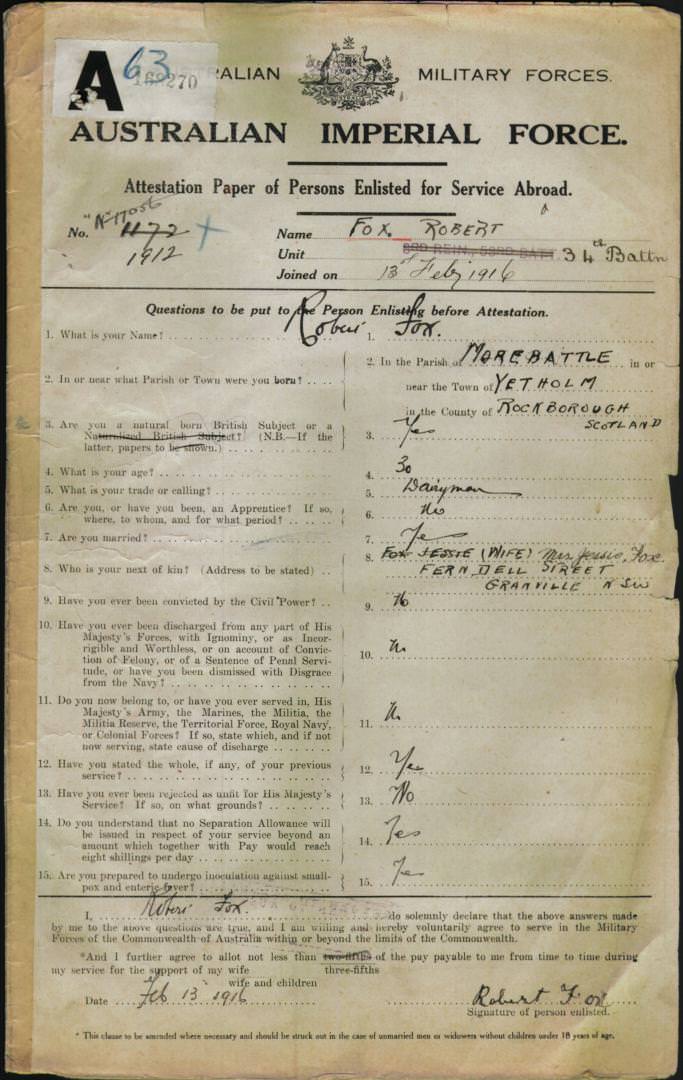 A 63
16 270
RALIAN MILITARY FORCES.
AUSTRALIAN IMPERIAL FORCE.
Attestation Paper of Persons Enlisted for Service Abroad.
No. 1172
1912
Name FOX. ROBERT
Unit 3RD REIN., 53RD BATT 34th Battn
Joined on 13th Feby 1916
Questions to be put to the Person Enlisting before Attestation.
1. What is your Name? 1. Robert Fox.
2. In or near what Parish or Town were you born? 2. In the Parish of MOREBATTLE in or
near the Town of YETHOLM
in the County of ROCKBOROUGH
SCOTLAND
3. Are you a natural born British Subject or a
Naturalized British Subject? (N.B.—If the
latter, papers to be shown.) 3. Yes
4. What is your age? 4. 30
5. What is your trade or calling? 5. Dairyman
6. Are you, or have you been, an Apprentice? If so,
where, to whom, and for what period? 6. No
7. Are you married? 7. Yes
8. Who is your next of kin? (Address to be stated) 8. FOX JESSIE (WIFE) Mrs Jessie Fox.
FERN DELL STREET
GRANVILLE N SW
9. Have you ever been convicted by the Civil Power? 9. No
10. Have you ever been discharged from any part of His
Majesty's Forces, with Ignominy, or as Incor-
rigible and Worthless, or on account of Convic-
tion of Felony, or of a Sentence of Penal Servi-
tude, or have you been dismissed with Disgrace
from the Navy? 10. No
11. Do you now belong to, or have you ever served in, His
Majesty's Army, the Marines, the Militia, the
Militia Reserve, the Territorial Force, Royal Navy,
or Colonial Forces? If so, state which, and if not
now serving, state cause of discharge 11. No
12. Have you stated the whole, if any, of your previous
service? 12. Yes
13. Have you ever been rejected as unfit for His Majesty's
Service? If so, on what grounds? 13. No
14. Do you understand that no Separation Allowance will
be issued in respect of your service beyond an
amount which together with Pay would reach
eight shillings per day 14. Yes
15. Are you prepared to undergo inoculation against small-
pox and enteric fever? 15. Yes
I, Robert Fox. do solemnly declare that the above answers made
by me to the above questions are true, and I am willing and hereby voluntarily agree to serve in the Military
Forces of the Commonwealth of Australia within or beyond the limits of the Commonwealth.
*And I further agree to allot not less than two-fifths of the pay payable to me from time to time during
my service for the support of my wife three-fifths
wife and children
Date Feb 13 1916 Robert Fox
Signature of person enlisted.
* This clause to be amended where necessary and should be struck out in the case of unmarried men or widowers without children under 18 years of age.